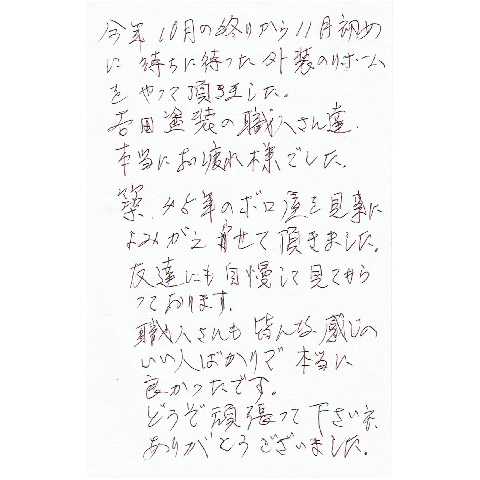 今年10月の終りから11月初め
に 待ちに待った外装のリホーム
を やって頂きました。
吉田塗装の職人さん達、
本当にお疲れ様でした。
築、45年のボロ家を見事に
よみがえらせて頂きました。
友達にも自慢して見てもらっ
ております。
職人さんも皆んな感じの
いい人ばかりで 本当に
良かったです。
どうぞ頑張って下さいネ、
ありがとうございました。